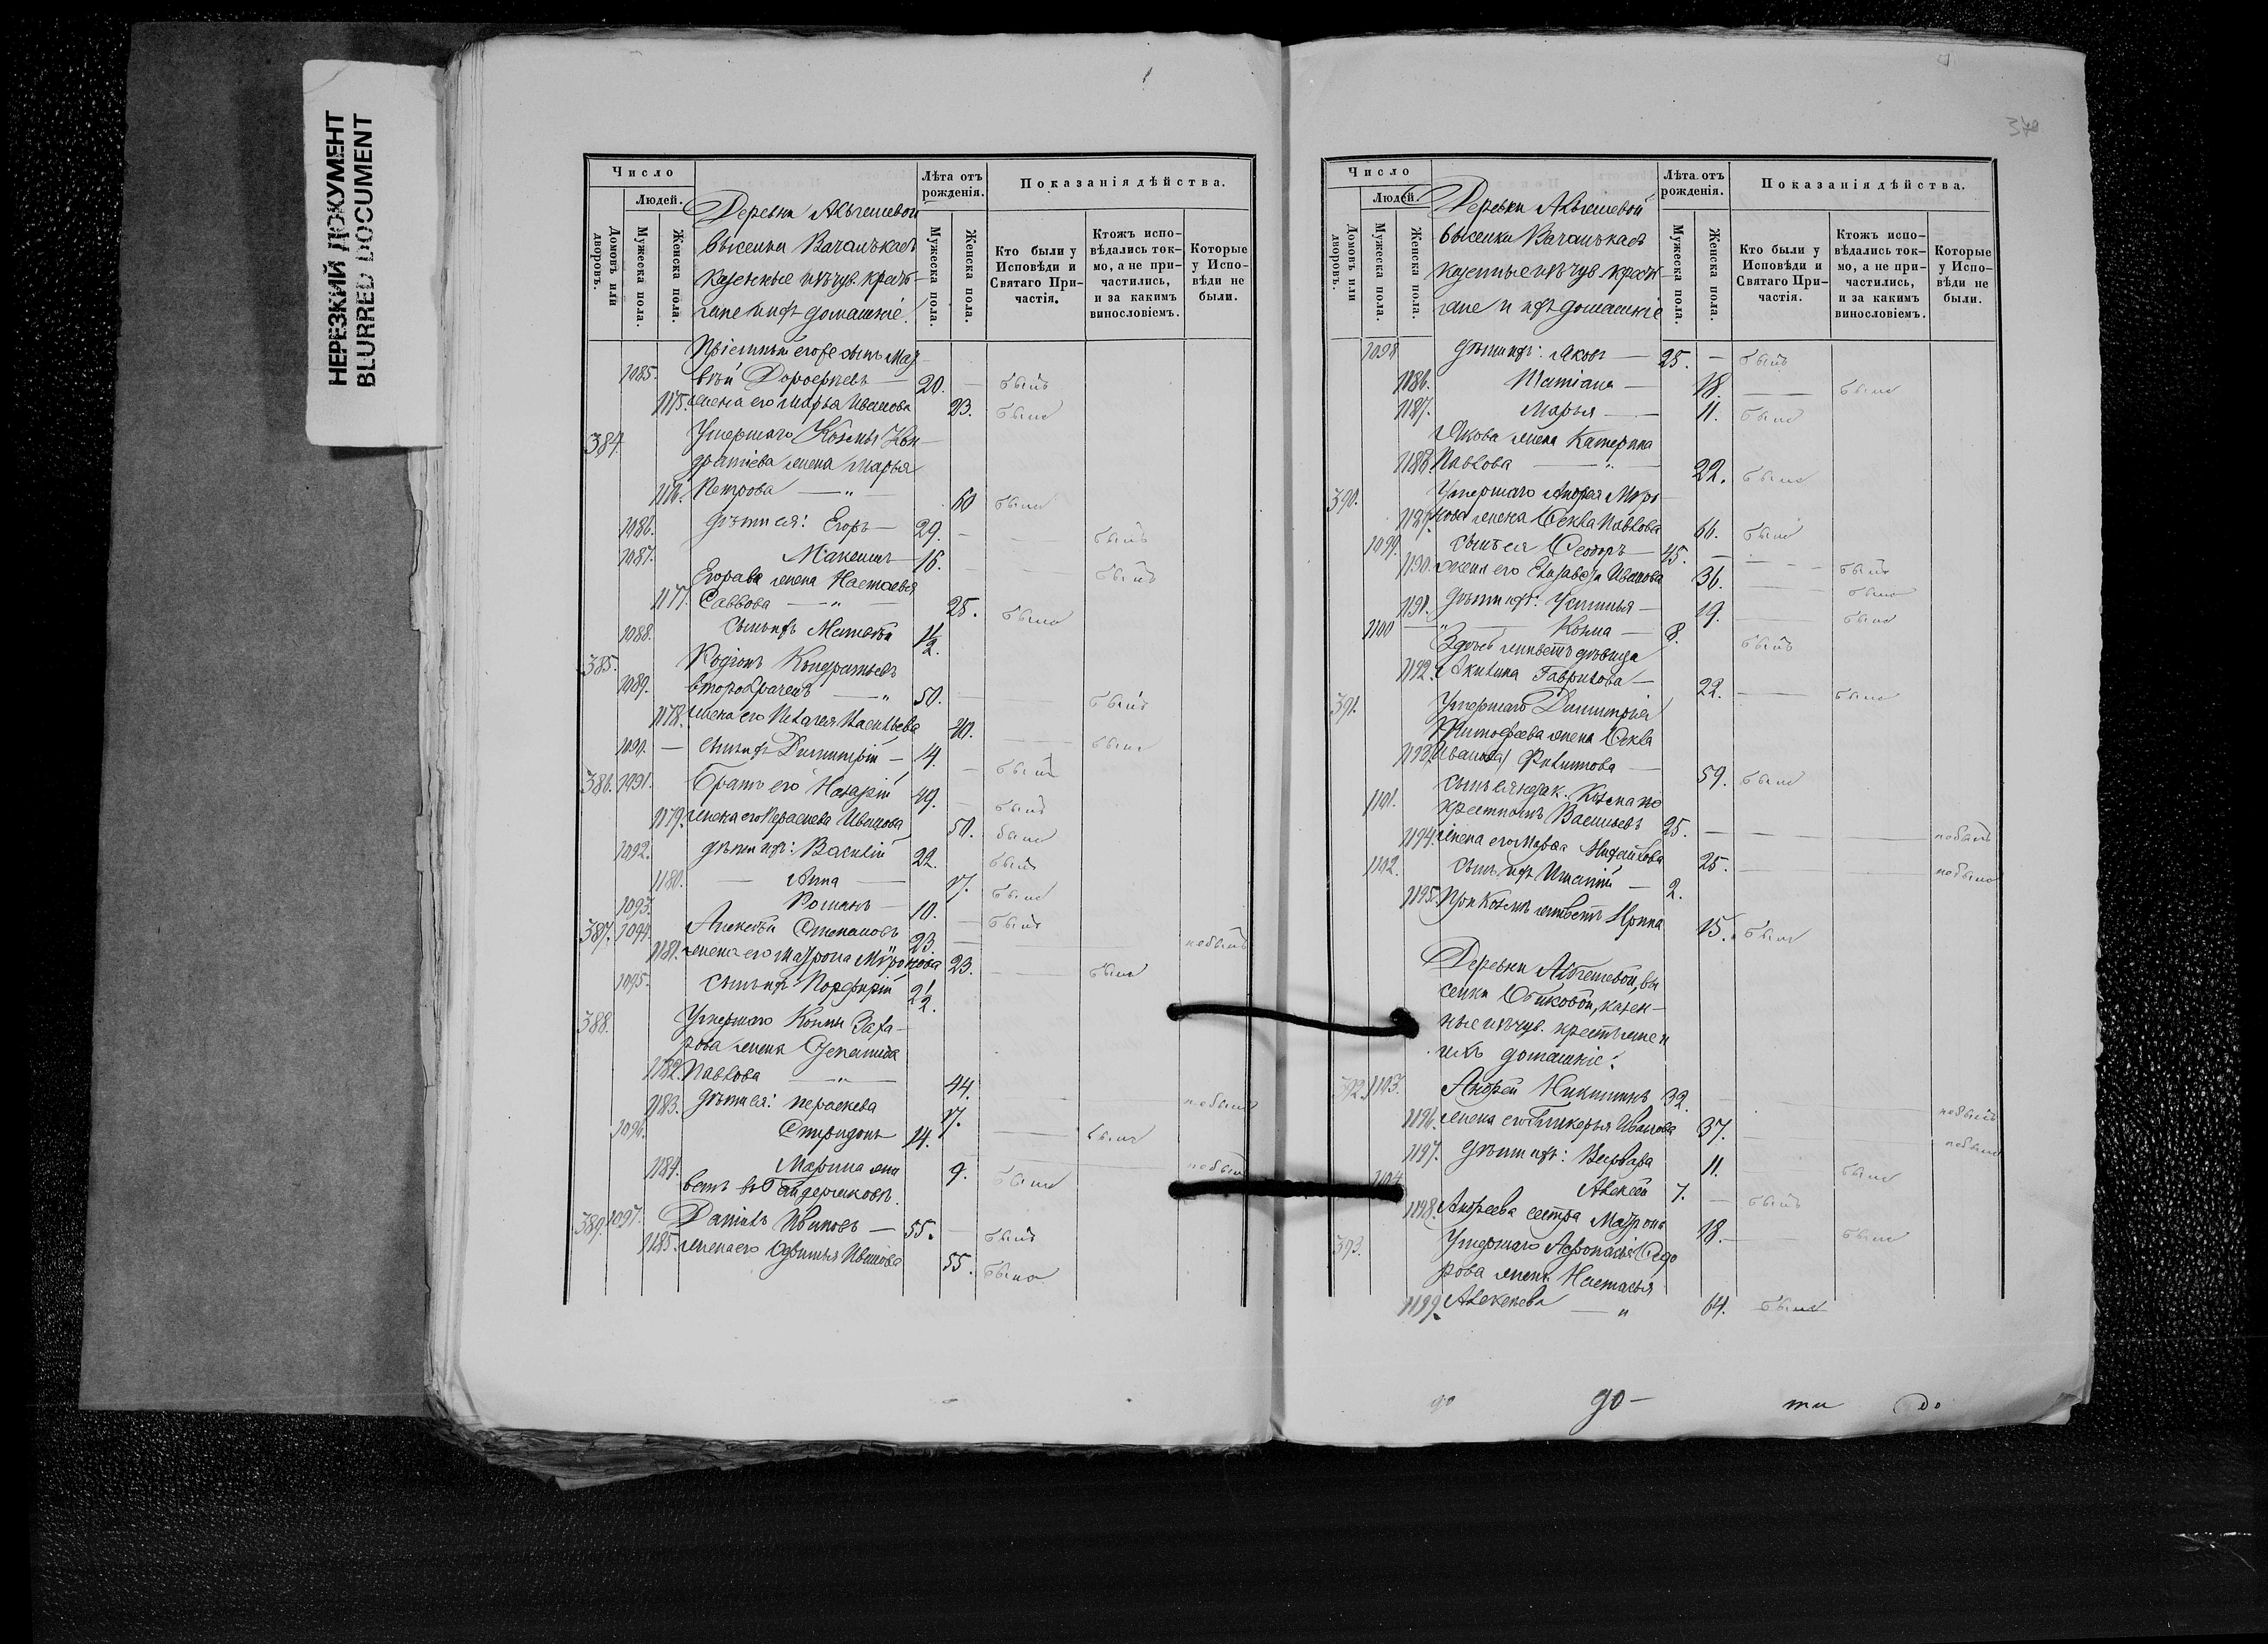 НЕРЕЗКИЙ ДОКУМЕНТ
BLURRED DOCUMENT
Число
Людей.
Домовъ или дворовъ.
Мужеска пола.
Женска пола.
Лѣта отъ рожденія.
Мужеска пола.
Женска пола.
Показанія дѣйства.
Кто были у Исповѣди и Святаго Причастія.
Ктожъ исповѣдались токмо, а не причастились, и за какимъ винословіемъ.
Которые у Исповѣди не были.
Деревни
казенные
и ихъ домашніе.
1085. Дорофеевъ — 20. — былъ
1175. жена его Марья Иванова 23. была
384. Умершаго Козмы Кон-
дратіева жена Марья
1176. Петрова — „ 60 была
1086. дѣти ея: Егоръ — 29. — былъ
1087. Максимъ — 16. — былъ
Егорова жена Наталья
1177. Саввова — „ 25. была
1088. сынъ ихъ Матвѣй 1½
385. Родіонъ Кондратьевъ
1089. второбраченъ — „ 50. — былъ
1178. жена его Пелагея Васильева 40. была
1090. — сынъ ихъ Димитрій — 4. — былъ
386. 1091. Братъ его Назарій 49. — былъ
1179. жена его Параскева Иванова 50. была
1092. дѣти ихъ: Василій 22. былъ
1180. — Анна — 17. была
1093. Романъ — 10. — былъ
387. 1094. Алексѣй Степановъ 23. — небылъ
1181. жена его Матрона Миронова 23. была
1095. сынъ ихъ Порфирій 2½
388. Умершаго Козмы Заха-
рова жена
1182. Павлова — „ — 44. небыла
1183. дѣти ея: Параскева 17. была
1096. Спиридонъ 14. небылъ
1184. Марина жи-
ветъ въ 9. была
389. 1097. Даніилъ Ивановъ — 55. — былъ
1185. жена его Иванова 55. была
Число
Людей.
Домовъ или дворовъ.
Мужеска пола.
Женска пола.
Лѣта отъ рожденія.
Мужеска пола.
Женска пола.
Показанія дѣйства.
Кто были у Исповѣди и Святаго Причастія.
Ктожъ исповѣдались токмо, а не причастились, и за какимъ винословіемъ.
Которые у Исповѣди не были.
Деревни
казенные
и ихъ домашніе
1098 дѣти ихъ: Яковъ — 25. — былъ
1186. Татіана — 18. — была
1187. Марья — 11. была
Якова жена Катерина
1188. Павлова — „ — 22. была
390. Умершаго Андрея Миро-
1189. нова жена Ѳекла Павлова 66. была
1099. сынъ ея Ѳеодоръ — 45. — былъ
1190. жена его Елизавета Иванова 36. была
1191. дѣти ихъ: Устинья — 19. была
1100 — „ — Козма — 8. былъ
Здѣсь живетъ дѣвица
1192. Акилина Гаврилова — 22. — была
391. Умершаго Димитрія
Тимофеева жена Ѳекла
1193. Иванова / Филипова — 59. была
1101. крестномъ Васильевъ 25. — небылъ
1194. жена его Марѳа Михайлова 25. небыла
1102. сынъ ихъ Игнатій — 2.
1195. При Козмѣ живетъ Ирина 15. была
Деревни
ихъ домашніе:
392. 1103. Андрей Никитинъ 32. небылъ
1196. жена его Гликерья Иванова 37. небыла
1197. дѣти ихъ: Варвара 11. была
1104. Алексѣй 7. — былъ
1198. Андреева сестра Матрона 18. — была
393. Умершаго Афонасья Ѳедо-
рова жена Наталья
1199. Алексеева — „ 64. была
до
до —
ти